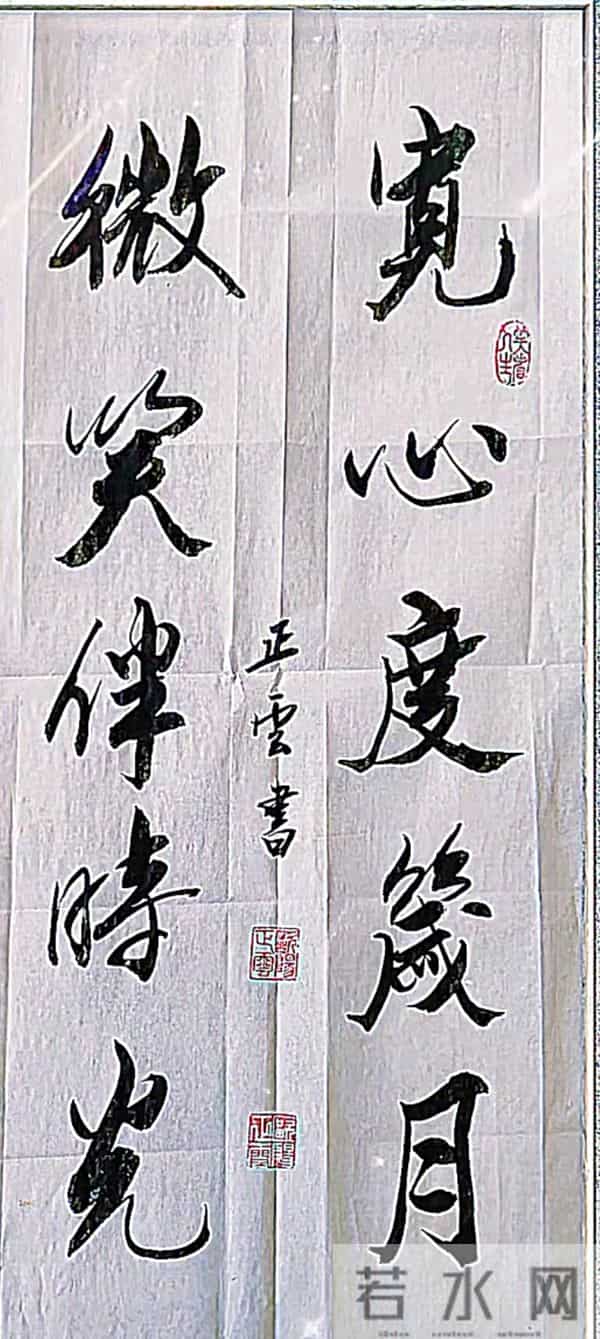 寬心度歲月
微笑伴時光
正雲書
若水网